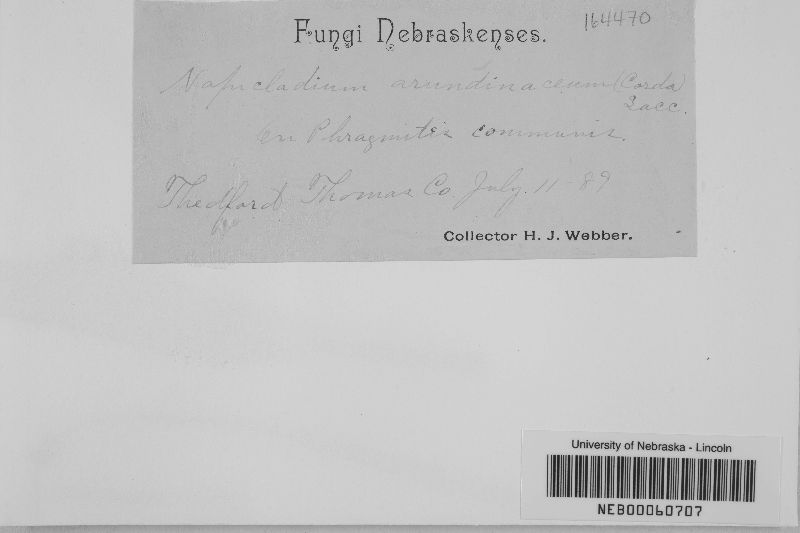 164470
Fungi Nebraskenses.
Napicladium arundinaceum (Corda)
Sacc.
On Phragmites communis.
Thedford Thomas Co. July. 11-89
Collector H. J. Webber.
University of Nebraska - Lincoln
NEB00060707